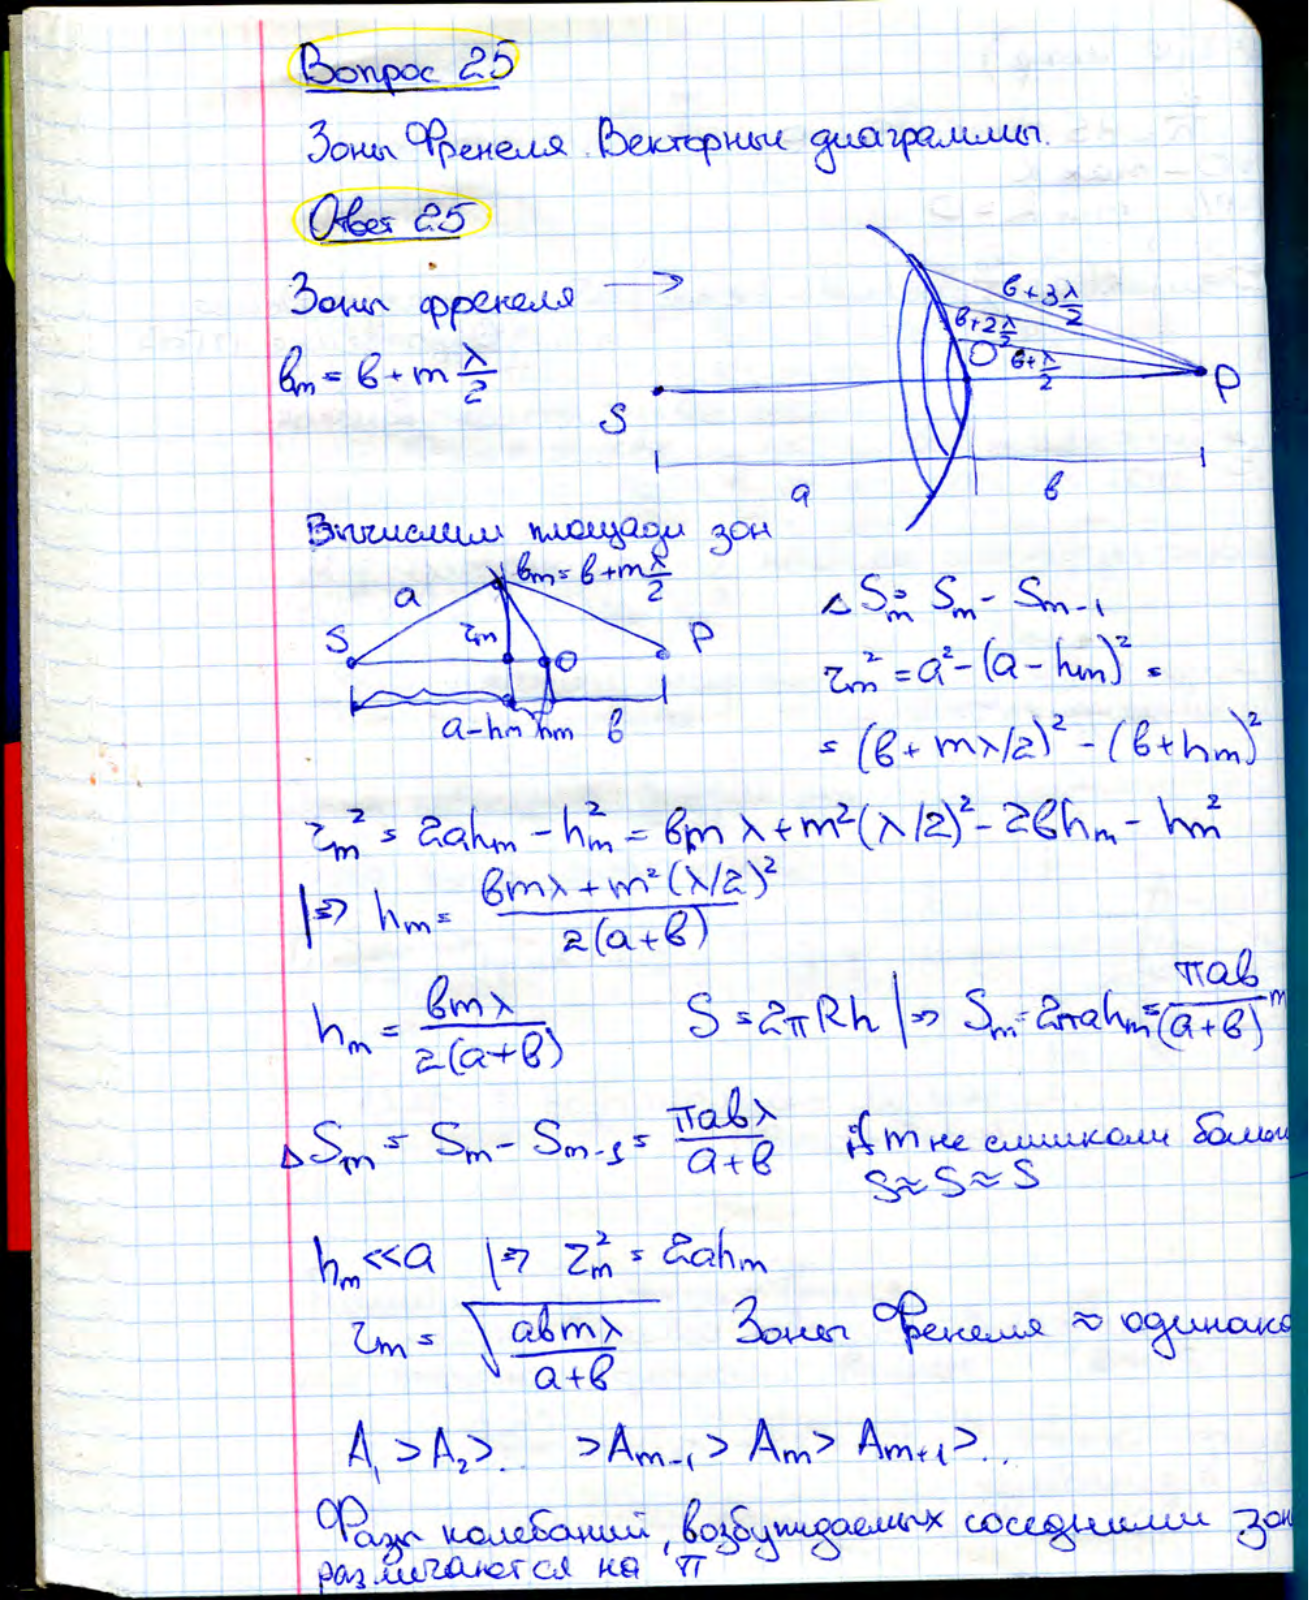 Вопрос 25
Зоны Френеля. Векторные диаграммы.
Ответ 25
Зоны френеля →
bₘ = b + m λ/2
b+3 λ/2
b+2 λ/2
b+ λ/2
O
P
S
a
b
Вычислим площади зон
bₘ = b + m λ/2
a
S
rₘ
O
P
a-hₘ hₘ b
ΔSₘ = Sₘ - Sₘ₋₁
rₘ² = a² - (a - hₘ)² =
= (b + mλ/2)² - (b + hₘ)²
rₘ² = 2ahₘ - hₘ² = bmλ + m²(λ/2)² - 2bhₘ - hₘ²
|⇒ hₘ = (bmλ + m²(λ/2)²)/(2(a+b))
hₘ = bmλ/(2(a+b)) S = 2πRh |⇒ Sₘ = 2πahₘ = πab/(a+b) m
ΔSₘ = Sₘ - Sₘ₋₁ = πabλ/(a+b) if m не слишком больш
S≈S≈S
hₘ << a |⇒ rₘ² = 2ahₘ
rₘ = √(abmλ/(a+b)) Зоны Френеля ≈ одинако
A₁ > A₂ >.. > Aₘ₋₁ > Aₘ > Aₘ₊₁ >...
Фазы колебаний, возбуждаемых соседними зон
различаются на π